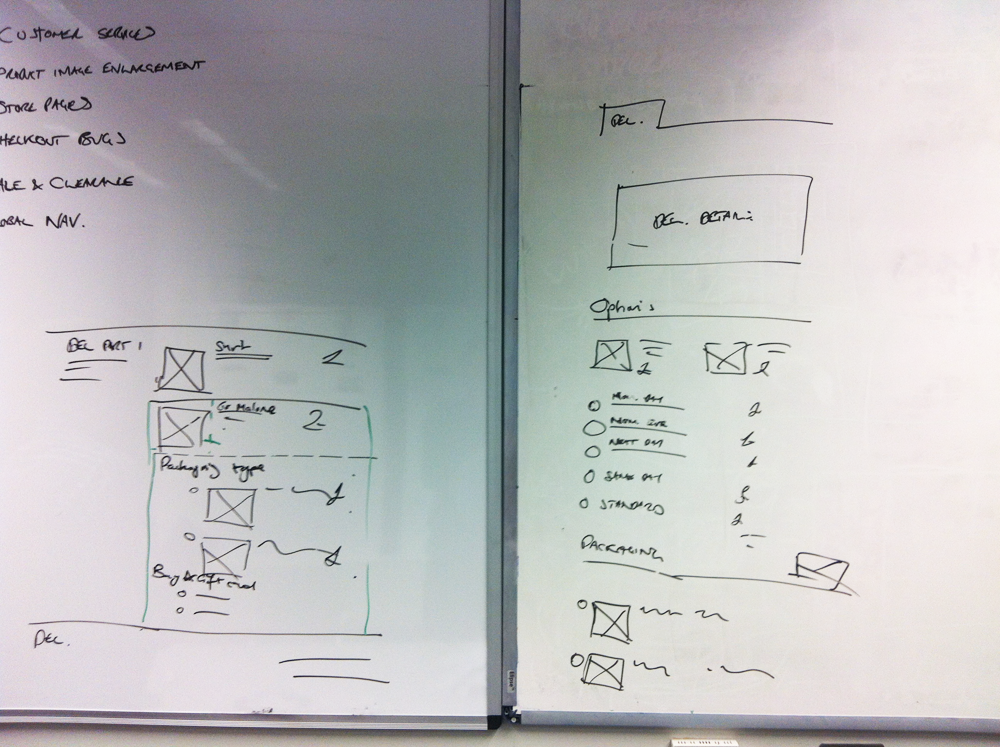 CUSTOMER SERVICES
PRODUCT IMAGE ENLARGEMENT
STORE PAGES
CHECKOUT BUGS
ALE & CLEARANCE
OBAL NAV.
DEL PART 1
Shirt
1
Jo Malone
2
Packaging type
Buy a Gift card
DEL.
DEL.
DEL. DETAILS
Options
NEXT DAY
SAME DAY
STANDARD
PACKAGING